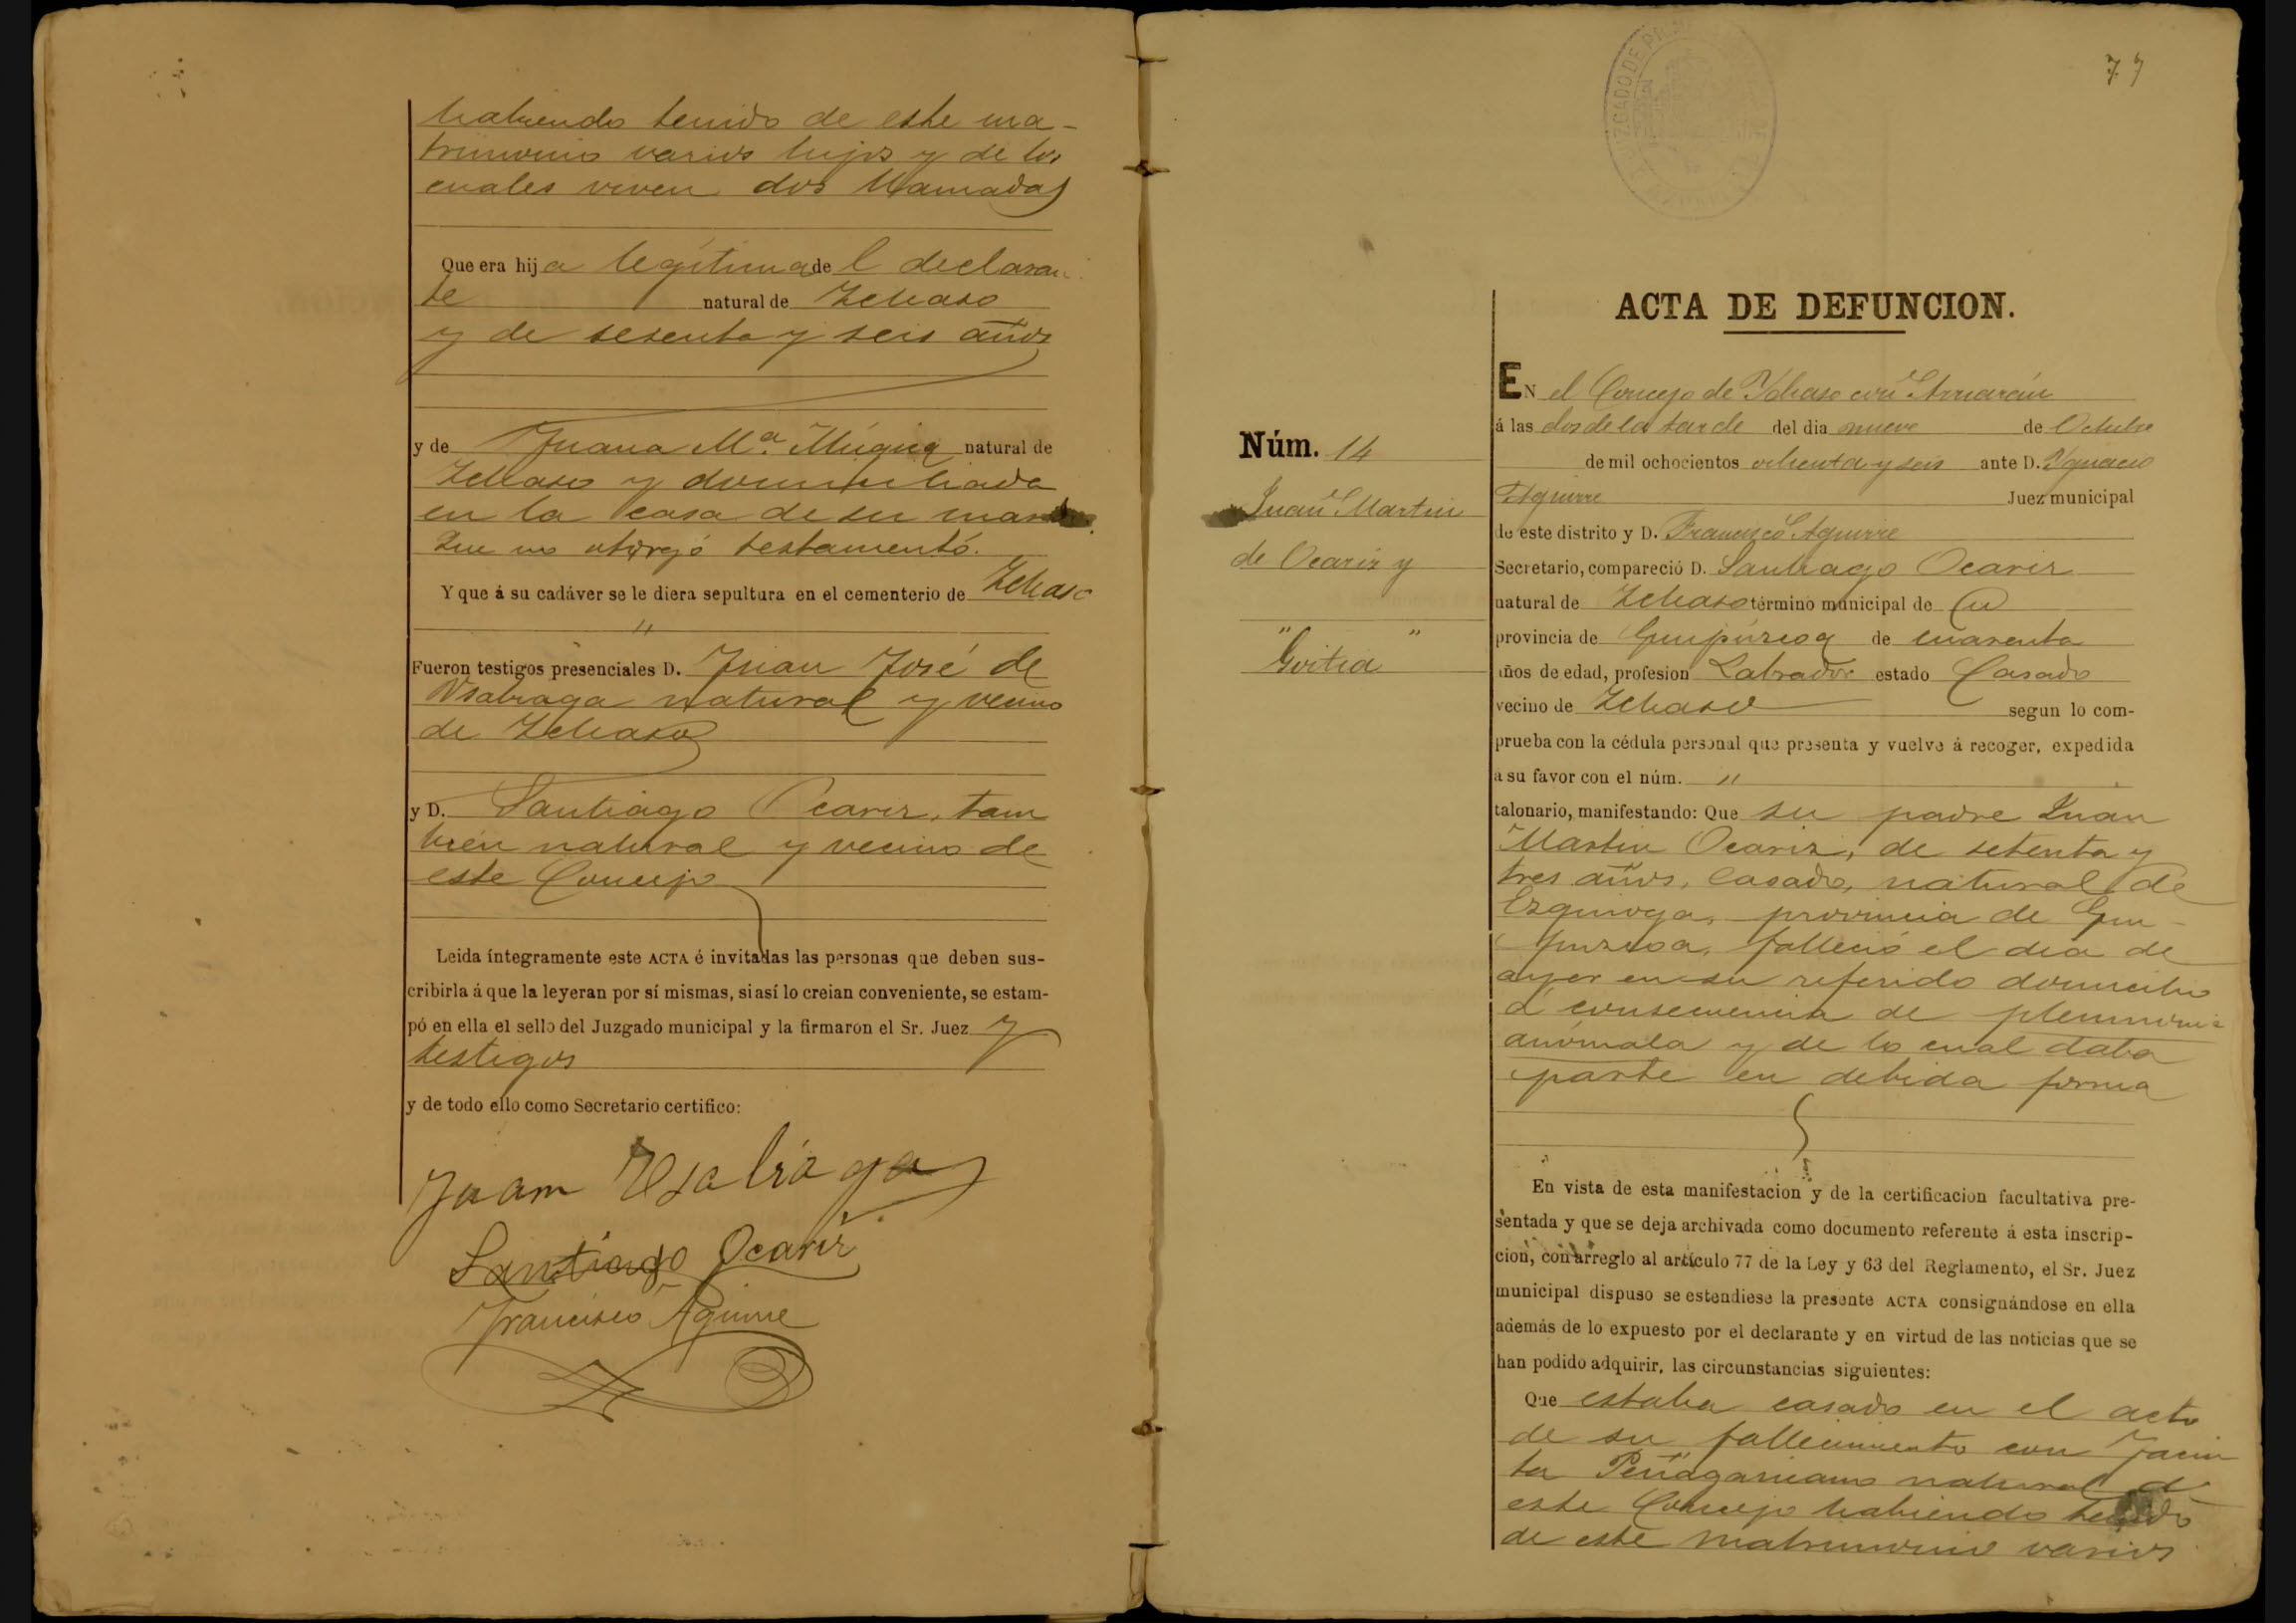 habiendo tenido de este ma-
trimonio varios hijos y de los
cuales viven dos llamadas
Que era hija legítima del declaran
te natural de Ichaso
y de sesenta y seis años
y de Juana Mª. Múgica natural de
Ichaso y domiciliada
en la casa de su marido.
Que no otorgó testamentó.
Y que á su cadáver se le diera sepultura en el cementerio de Ichaso
"
Fueron testigos presenciales D. Juan José de
Usabiaga natural y vecino
de Ichaso
y D. Santiago Ocariz, tam
bién natural y vecino de
este Concejo
Leida íntegramente este ACTA é invitadas las personas que deben sus-
cribirla á que la leyeran por sí mismas, si así lo creian conveniente, se estam-
pó en ella el sello del Juzgado municipal y la firmaron el Sr. Juez y
testigos
y de todo ello como Secretario certifico:
Juam Usabiaga
Santiago Ocariz
Francisco Aguirre
77
JUZGADO DE
ACTA DE DEFUNCION.
Núm. 14
Juan Martin
de Ocariz y
" "
Goitia
EN el Concejo de Ichaso con Arriarán
á las dos de la tarde del dia nueve de Octubre
de mil ochocientos ochenta y seis ante D. Ygnacio
Aguirre Juez municipal
de este distrito y D. Francisco Aguirre
Secretario, compareció D. Santiago Ocariz
natural de Ichaso término municipal de id
provincia de Guipúzcoa de cuarenta
años de edad, profesion Labrador estado Casado
vecino de Ichaso segun lo com-
prueba con la cédula personal que presenta y vuelve á recoger, expedida
a su favor con el núm. "
talonario, manifestando: Que su padre Juan
Martin Ocariz, de setenta y
tres años, casado, natural de
Ezquioga, provincia de Gui-
puzcoa, falleció el dia de
ayer en su referido domicilio
á consecuencia de pleumonia
anómala y de lo cual daba
parte en debida forma
En vista de esta manifestacion y de la certificacion facultativa pre-
sentada y que se deja archivada como documento referente á esta inscrip-
cion, con arreglo al artículo 77 de la Ley y 63 del Reglamento, el Sr. Juez
municipal dispuso se estendiese la presente ACTA consignándose en ella
además de lo expuesto por el declarante y en virtud de las noticias que se
han podido adquirir, las circunstancias siguientes:
Que estaba casado en el acto
de su fallecimiento con Jacin
ta Peñagaricano natural d
este Concejo habiendo tenido
de este matrimonio varios